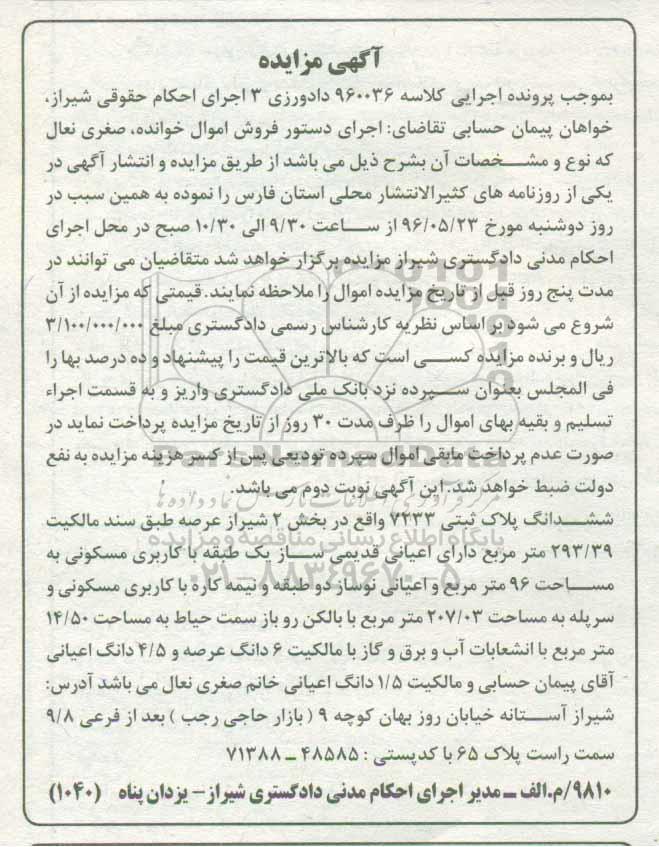 آگهی مزایده
بموجب پرونده اجرایی کلاسه ۹۶۰۰۳۶ دادورزی ۳ اجرای احکام حقوقی شیراز،
خواهان پیمان حسابی تقاضای: اجرای دستور فروش اموال خوانده، صغری نعال
که نوع و مشخصات آن بشرح ذیل می باشد از طریق مزایده و انتشار آگهی در
یکی از روزنامه های کثیرالانتشار محلی استان فارس را نموده به همین سبب در
روز دوشنبه مورخ ۹۶/۰۵/۲۳ از ساعت ۹/۳۰ الی ۱۰/۳۰ صبح در محل اجرای
احکام مدنی دادگستری شیراز مزایده برگزار خواهد شد متقاضیان می توانند در
مدت پنج روز قبل از تاریخ مزایده اموال را ملاحظه نمایند. قیمتی که مزایده از آن
شروع می شود بر اساس نظریه کارشناس رسمی دادگستری مبلغ ۳/۱۰۰/۰۰۰/۰۰۰
ریال و برنده مزایده کسی است که بالاترین قیمت را پیشنهاد و ده درصد بها را
فی المجلس بعنوان سپرده نزد بانک ملی دادگستری واریز و به قسمت اجراء
تسلیم و بقیه بهای اموال را ظرف مدت ۳۰ روز از تاریخ مزایده پرداخت نماید در
صورت عدم پرداخت مابقی اموال سپرده تودیعی پس از کسر هزینه مزایده به نفع
دولت ضبط خواهد شد. این آگهی نوبت دوم می باشد.
ششدانگ پلاک ثبتی ۷۲۳۳ واقع در بخش ۲ شیراز عرصه طبق سند مالکیت
۲۹۳/۳۹ متر مربع دارای اعیانی قدیمی ساز یک طبقه با کاربری مسکونی به
مساحت ۹۶ متر مربع و اعیانی نوساز دو طبقه و نیمه کاره با کاربری مسکونی و
سرپله به مساحت ۲۰۷/۰۳ متر مربع با بالکن رو باز سمت حیاط به مساحت ۱۴/۵۰
متر مربع با انشعابات آب و برق و گاز با مالکیت ۶ دانگ عرصه و ۴/۵ دانگ اعیانی
آقای پیمان حسابی و مالکیت ۱/۵ دانگ اعیانی خانم صغری نعال می باشد آدرس:
شیراز آستانه خیابان روز بهان کوچه ۹ ( بازار حاجی رجب ) بعد از فرعی ۹/۸
سمت راست پلاک ۶۵ با کدپستی : ۴۸۵۸۵ ــ ۷۱۳۸۸
۹۸۱۰/م.الف ــ مدیر اجرای احکام مدنی دادگستری شیراز- یزدان پناه (۱۰۴۰)
ParsNamadData
پایگاه اطلاع رسانی مناقصه و مزایده
۰۲۱-۸۸۳۴۹۶۷۰-۵